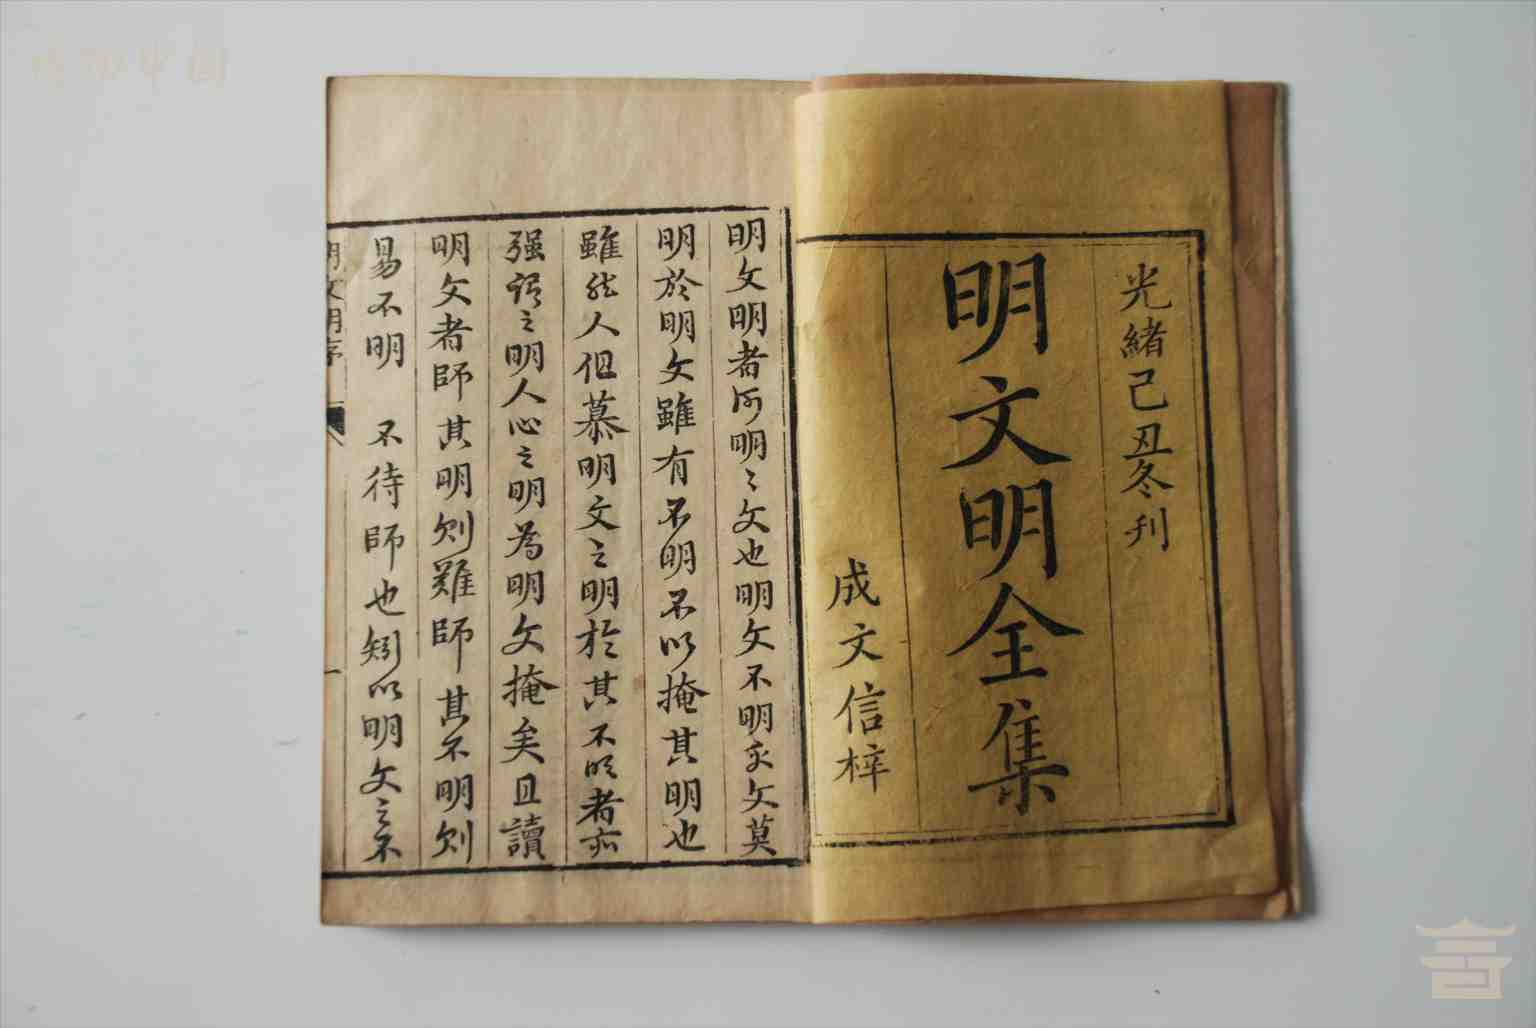 光緒己丑冬刊
明文明全集
成文信梓
明文明者所明〻文也明文不明炙文莫
明於明文雖有不明不以掩其明也
雖然人但慕明文之明於其不明者亦
强謂之明人心之明為明文掩矣且讀
明文者師其明則難師其不明則
易不明 不待師也矧以明文之不
明文明序
一